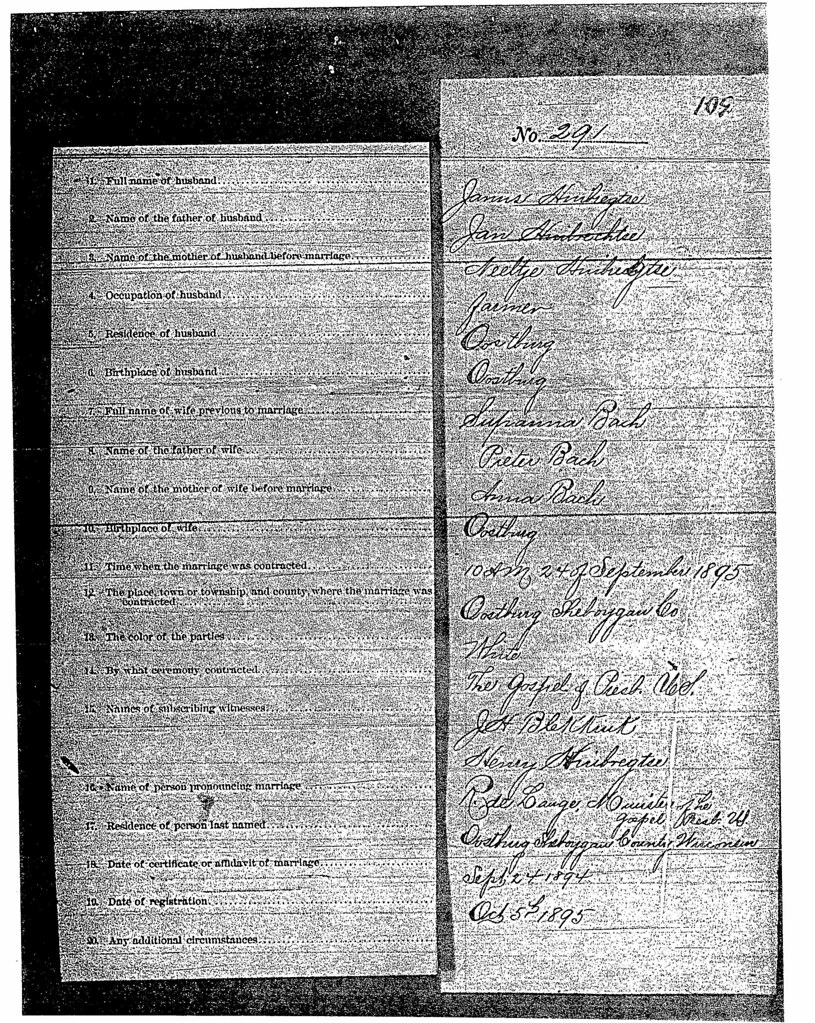 109
No. 291
1. Full name of husband
Janus Huibregtse
2. Name of the father of husband
Jan Huibrechtse
3. Name of the mother of husband before marriage
Neeltje Huibregtse
4. Occupation of husband
farmer
5. Residence of husband
Oostburg
6. Birthplace of husband
Oostburg
7. Full name of wife previous to marriage
Susanna Bach
8. Name of the father of wife
Pieter Bach
9. Name of the mother of wife before marriage
Anna Bach
10. Birthplace of wife
Oostburg
11. Time when the marriage was contracted
10 A M, 24 of September 1895
12. The place, town or township, and county, where the marriage was
contracted
Oostburg Sheboygan Co
13. The color of the parties
White
14. By what ceremony contracted
The Gospel of Presb. U.S.
15. Names of subscribing witnesses
J H
Henry Huibregtse
16. Name of person pronouncing marriage
R de Lange, Minister of the
gospel Presb. U
17. Residence of person last named
Oostburg Sheboygan County, Wisconsin
18. Date of certificate or affidavit of marriage
Sept 24 1894
19. Date of registration
Oct 5th 1895
20. Any additional circumstances